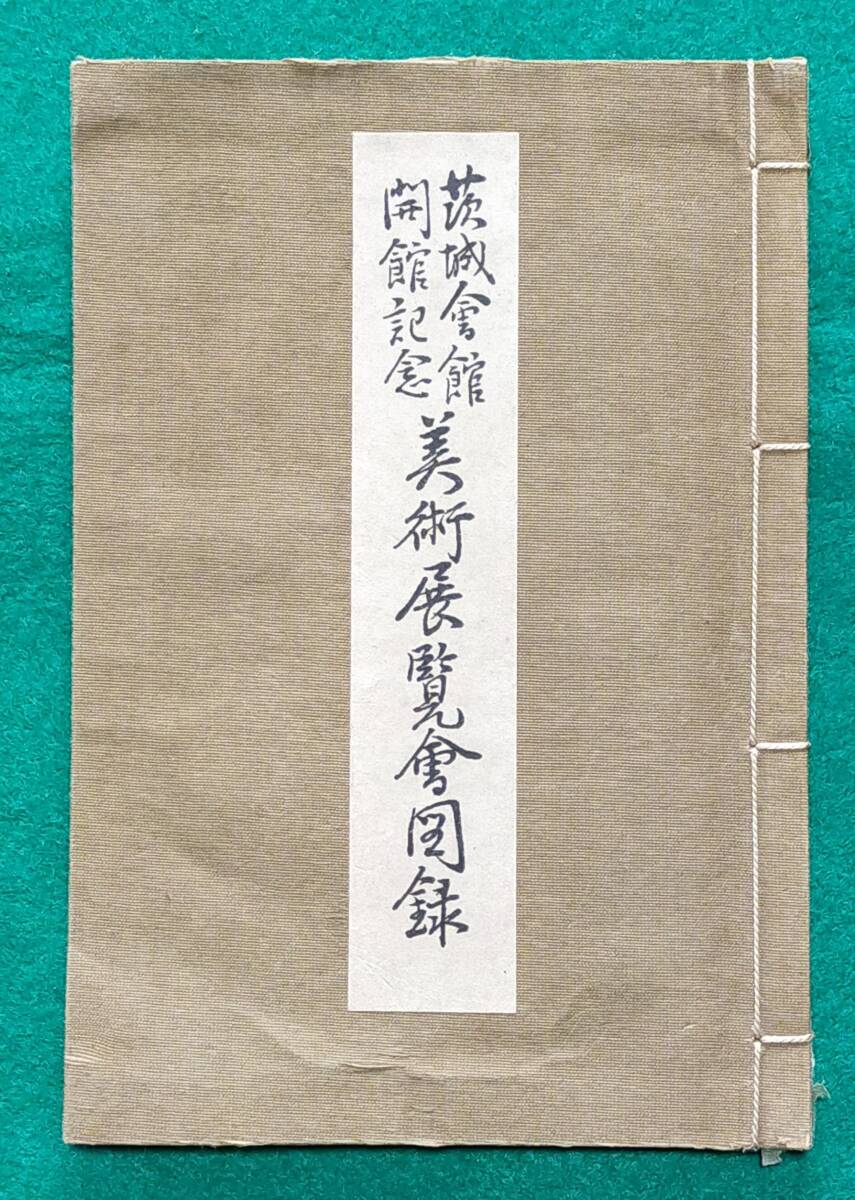 茨城會館
開館記念
美術展覽會図録